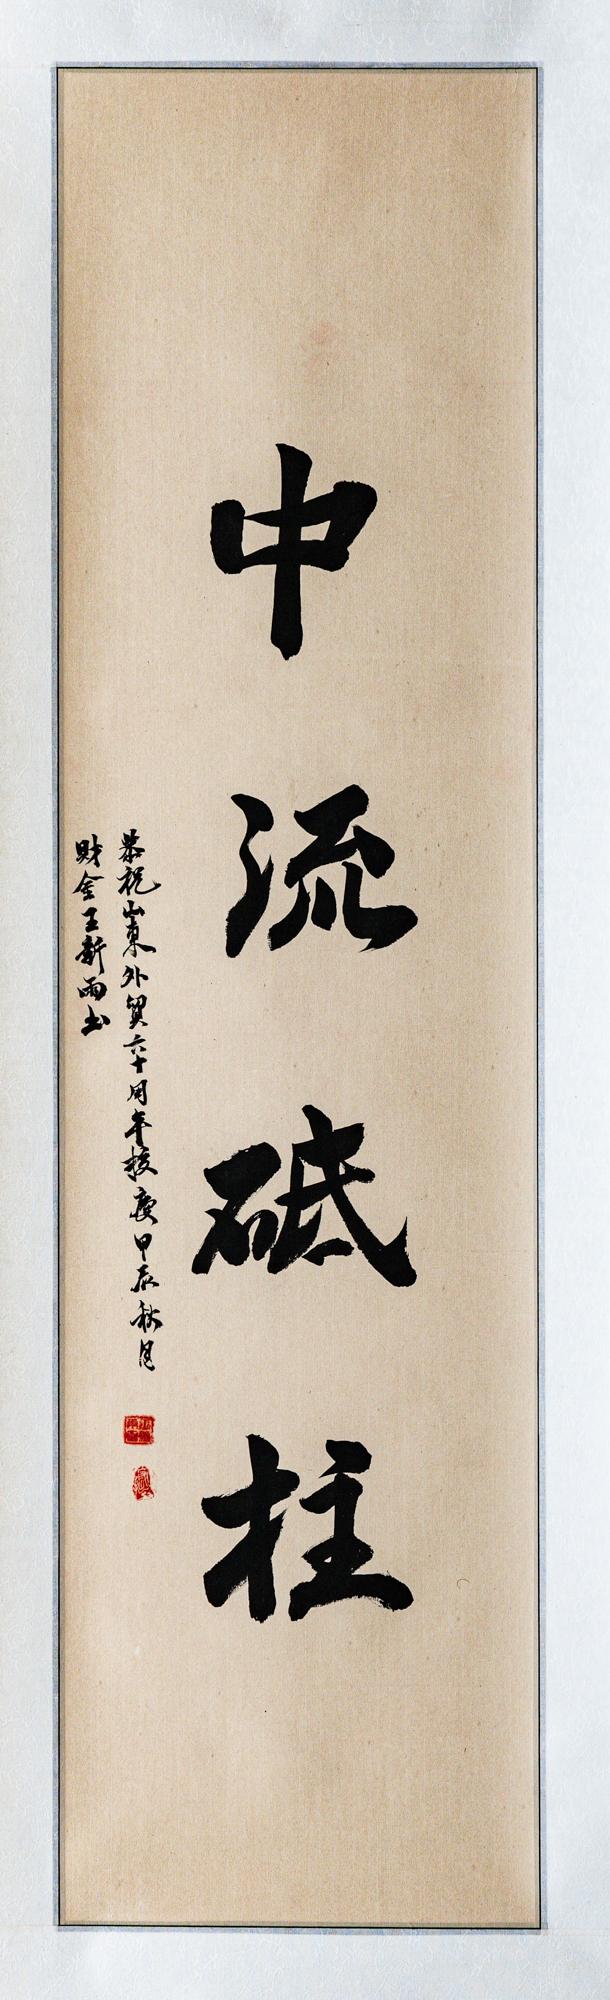 中流砥柱
恭祝山東外貿六十周年校慶甲辰秋月
財金王新雨书